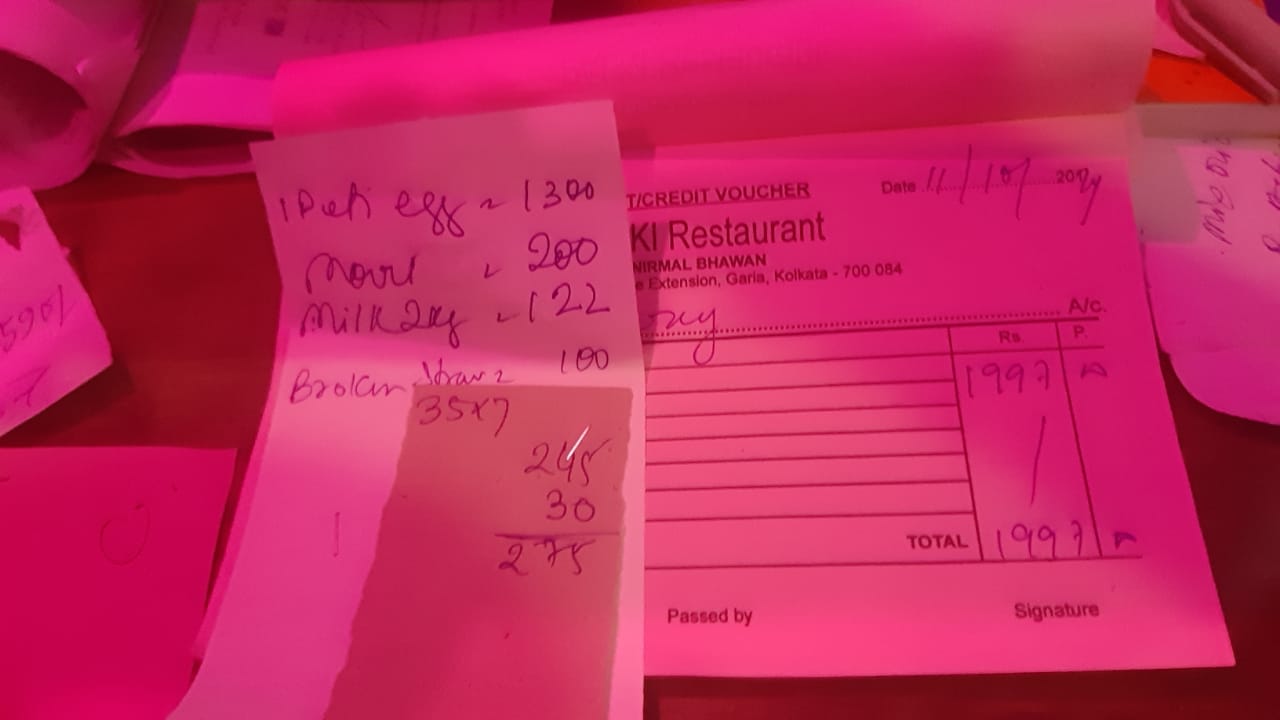 1 Peti egg = 1300
200
Milk 2kg = 122
Broken 100
35x7
245
30
275
T/CREDIT VOUCHER
Date 11/10/ 2024
KI Restaurant
NIRMAL BHAWAN
e Extension, Garia, Kolkata - 700 084
A/c.
Rs. P.
1997
TOTAL 1997
Passed by Signature
590/